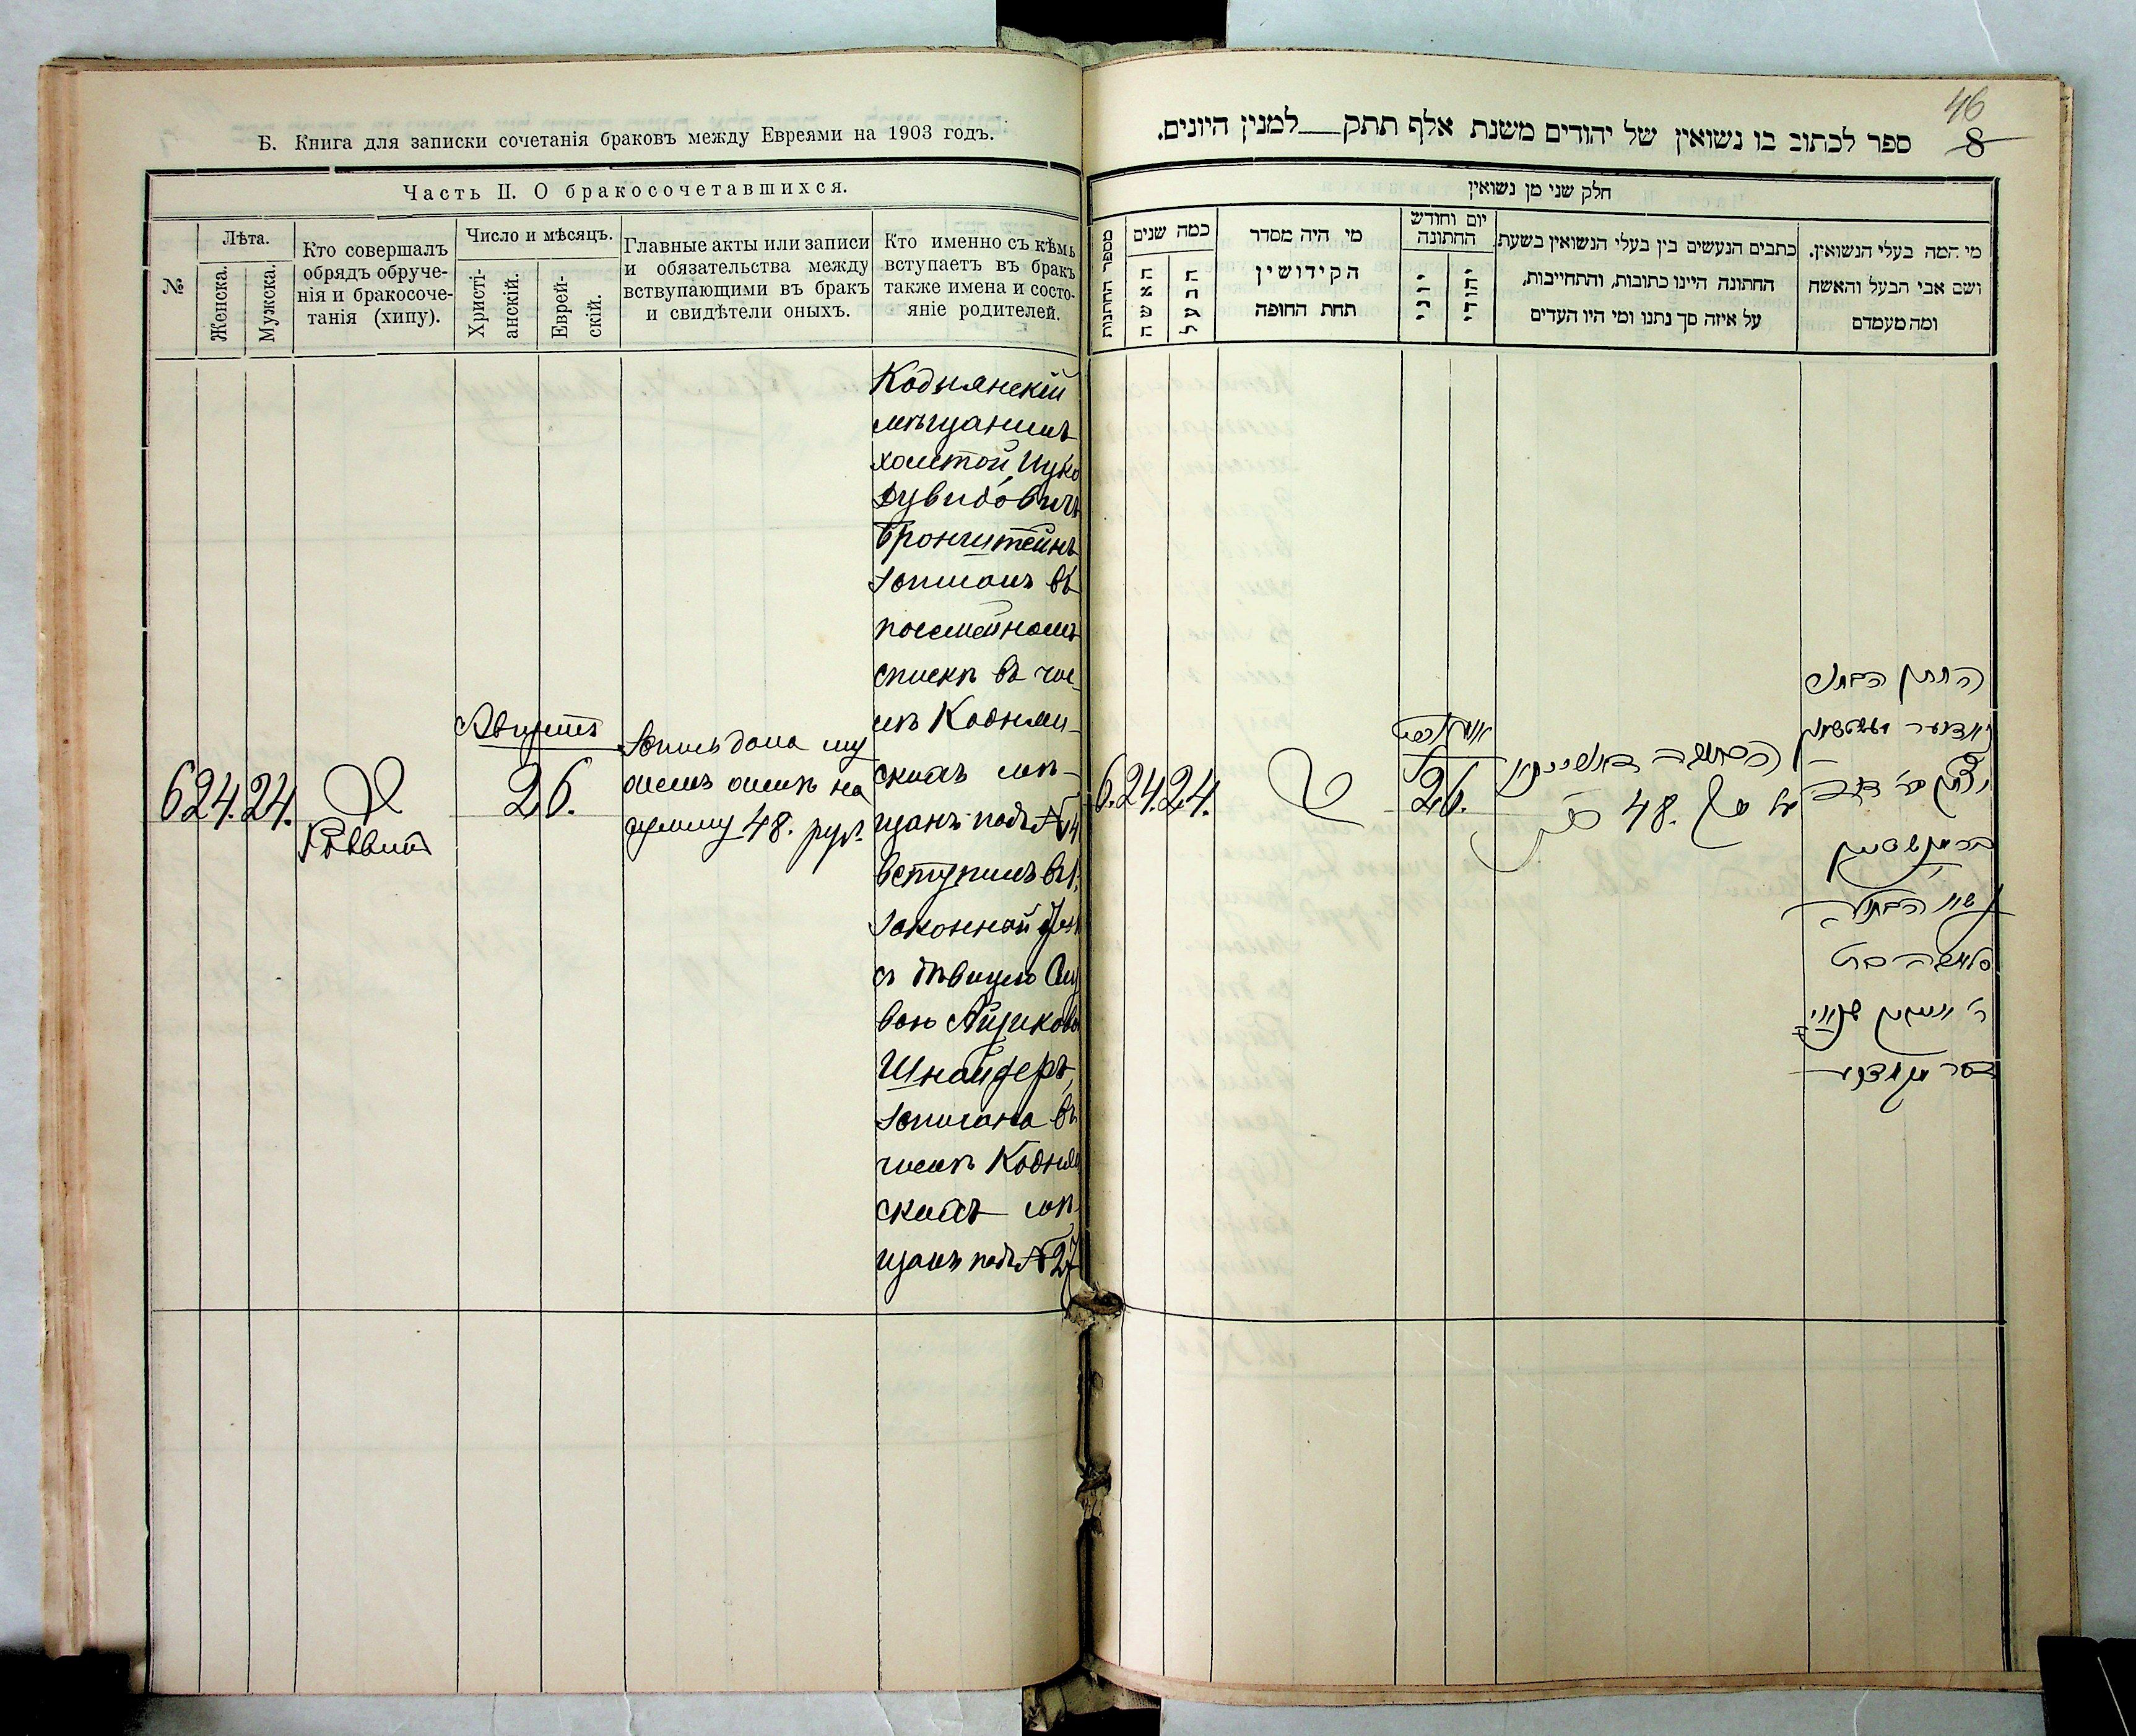 Б. Книга для записки сочетанія браковъ между Евреями на 1903 годъ.
Часть II. О бракосочетавшихся.
№
Лѣта.
Женска.
Мужска.
Кто совершалъ
обрядъ обруче-
нія и бракосоче-
танія (хипу).
Число и мѣсяцъ.
Христі-
анскій.
Еврей-
скій.
Главные акты или записи
и обязательства между
вствупающими въ бракъ
и свидѣтели оныхъ.
Кто именно съ кѣмъ
вступаетъ въ бракъ
также имена и состо-
яніе родителей.
6
24.
24.
Раввинъ
Августъ
26.
Запись дана му
жемъ женѣ на
сумму 48. руб.
Коднянскій
мѣщанинъ
холостой Ицко
Дувидовичъ
Бронштейнъ
записанъ въ
посемейномъ
спискѣ въ чис-
лѣ Коднян-
скихъ мѣ-
щанъ подъ №
вступилъ въ 1.
законный
съ дѣвицею
Айциковою
Шнайдеръ,
записана въ
числѣ Коднян
скихъ мѣ-
щанъ подъ № 27
46
8
ספר לכתוב בו נשואין של יהודים משנת אלף תתק למנין היונים.
חלק שני מן נשואין
מספר החתונות
כמה שנים
האשה
הבעל
מי היה מסדר
הקידושין
תחת החופה
יום וחודש
החתונה
יוני
יהודי
כתבים הנעשים בין בעלי הנשואין בשעת
החתונה היינו כתובות, והתחייבות,
על איזה סך נתנו ומי היו העדים
מי המה בעלי הנשואין.
ושם אבי הבעל והאשה
ומה מעמדם
6.
24.
24.
אווגוסט
26.
הכתובה
על סך 48.
החתן הבחור
יצחק בר דוד
בראנשטיין
עם הבתולה